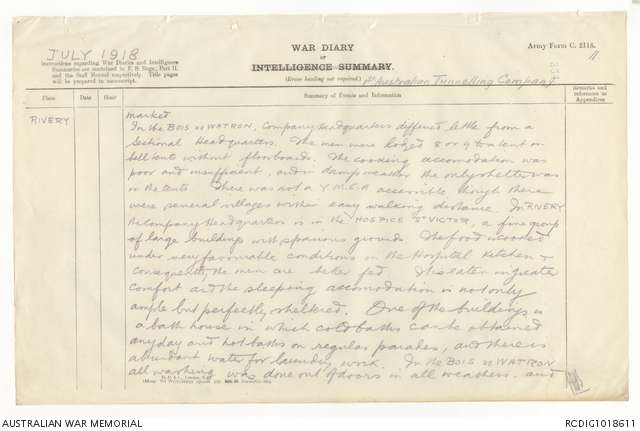 JULY 1918
WAR DIARY
or
INTELLIGENCE SUMMARY.
(Erase heading not required.)
Army Form C. 2118.
11
Instructions regarding War Diaries and Intelligence
Summaries are contained in F. S. Regs., Part II.
and the Staff Manual respectively. Title pages
will be prepared in manuscript.
1st Australian Tunnelling Company
Place
Date
Hour
Summary of Events and Information
Remarks and
references to
Appendices
RIVERY
market
In the BOIS DE WATRON, Company Headquarters differed little from a
Sectional Headquarters. The men were lodged 8 or 9 to a tent in
bell tents without floorboards. The cooking accomodation was
poor and insufficient, and in damp weather the only shelter was
in the tents. There was not a Y.M.C.A accessible though there
were several villages within easy walking distance. In RIVERY
the Company Headquarters is in the HOSPICE ST VICTOR, a fine group
of large buildings with spacious grounds. The food is cooked
under very favourable conditions in the Hospital Kitchen &
consequently the men are better fed. It is eaten in greater
comfort and the sleeping accomodation is not only
ample but perfectly sheltered. One of the buildings is
a bath house in which cold baths can be obtained
any day and hot baths on regular parades, and there is
abundant water for laundry work. In the BOIS DE WATRON
all washing was done out of doors in all weathers. and
AUSTRALIAN WAR MEMORIAL
RCDIG1018611